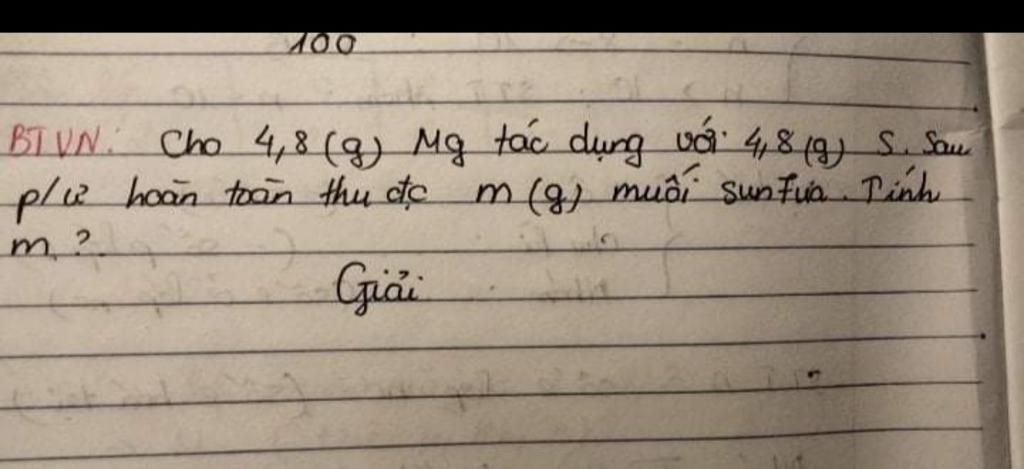 100
BTVN: Cho 4,8 (g) Mg tác dụng với 4,8 (g) S. Sau
p/ư hoàn toàn thu đc m (g) muối sunfua. Tính
m ?
Giải